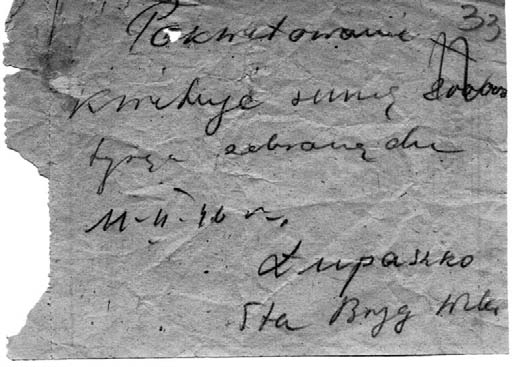 33
Pokwitowanie
Kwituję sumę
tysięcy zebraną dn
11-II-46 r.
Łupaszko
5ta Bryg Wil